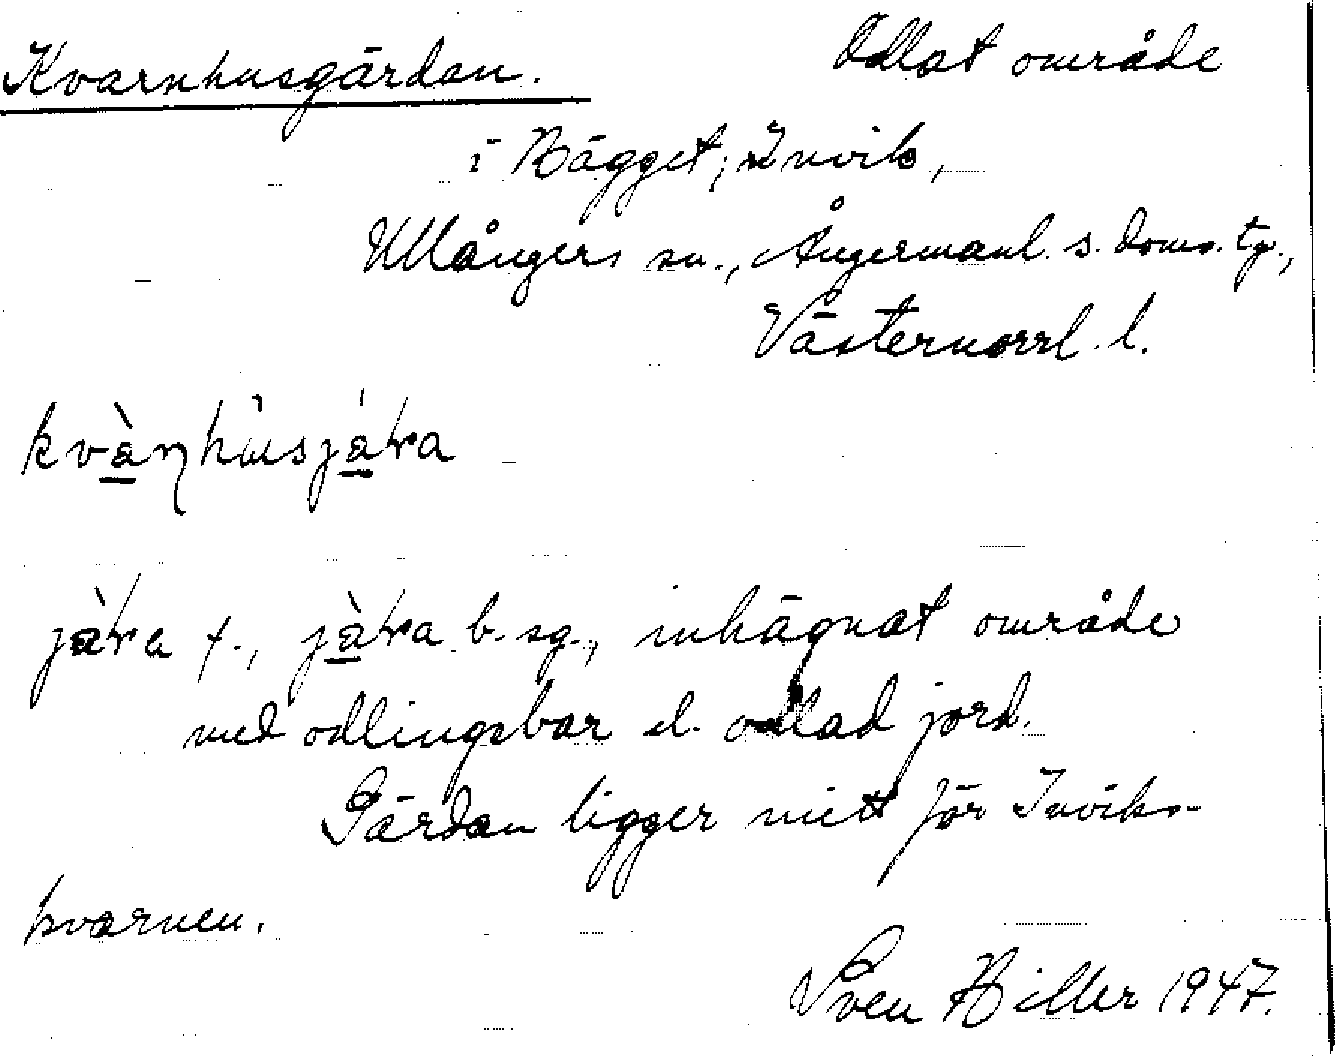 Kvarnhusgärdan. Odlat område
i Bägget, Invik,
Ullångers sn., Ångermanl. s. doms. tg.,
Västernorrl. l.
kvàɳhùsjára
jàra f., jàra b. sg., inhägnat område
med odlingsbar el. odlad jord.
Gärdan ligger mitt för Inviks-
kvarnen.
Sven Hiller 1947.